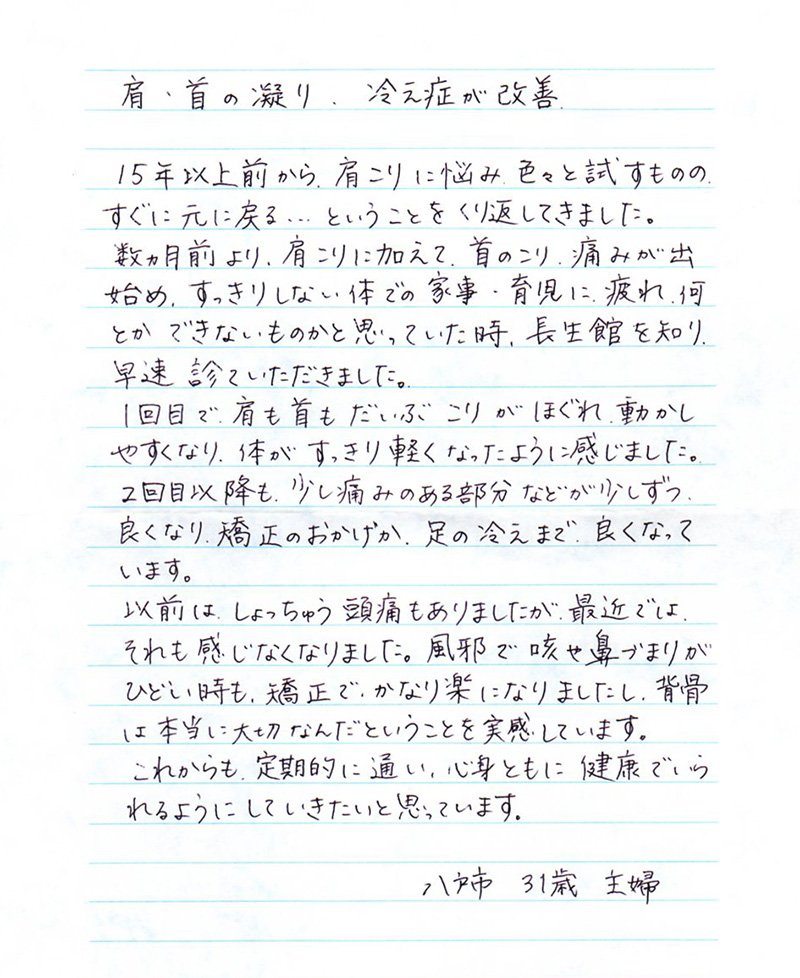 肩・首の凝り、冷え症が改善
15年以上前から、肩こりに悩み、色々と試すものの、
すぐに元に戻る…ということをくり返してきました。
数ヵ月前より、肩こりに加えて、首のこり、痛みが出
始め、すっきりしない体での家事・育児に、疲れ、何
とかできないものかと思っていた時、長生館を知り、
早速診ていただきました。
1回目で、肩も首もだいぶこりがほぐれ、動かし
やすくなり、体がすっきり軽くなったように感じました。
2回目以降も、少し痛みのある部分などが少しずつ、
良くなり、矯正のおかげか、足の冷えまで、良くなって
います。
以前は、しょっちゅう頭痛もありましたが、最近では、
それも感じなくなりました。風邪で咳や鼻づまりが
ひどい時も、矯正で、かなり楽になりましたし、背骨
は本当に大切なんだということを実感しています。
これからも、定期的に通い、心身ともに健康でいら
れるようにしていきたいと思っています。
八戸市 31歳 主婦